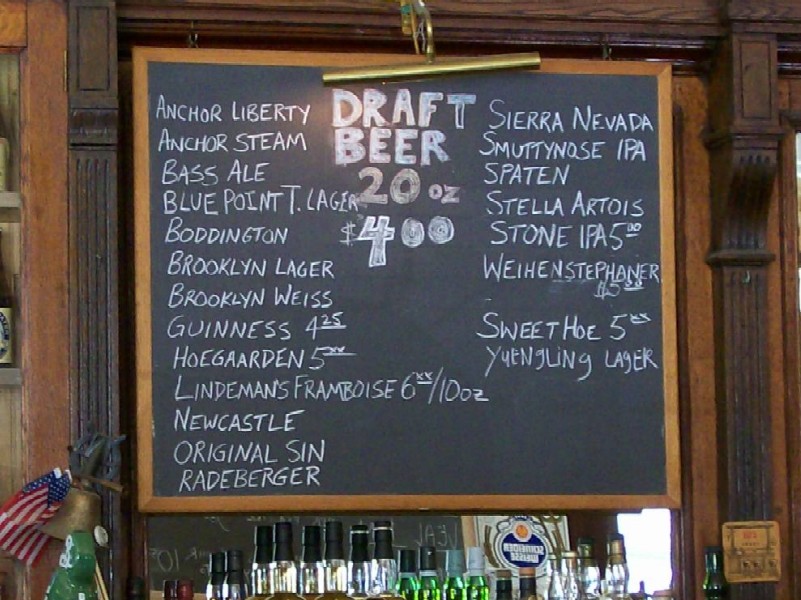 DRAFT
BEER
20 oz
$4 00
ANCHOR LIBERTY
ANCHOR STEAM
BASS ALE
BLUE POINT T. LAGER
BODDINGTON
BROOKLYN LAGER
BROOKLYN WEISS
GUINNESS 4 25
HOEGAARDEN 5 xx
LINDEMAN'S FRAMBOISE 6 xx/10oz
NEWCASTLE
ORIGINAL SIN
RADEBERGER
SIERRA NEVADA
SMUTTYNOSE IPA
SPATEN
STELLA ARTOIS
STONE IPA 5 00
WEIHENSTEPHANER
$5 00
SWEET HOE 5 xx
YUENGLING LAGER